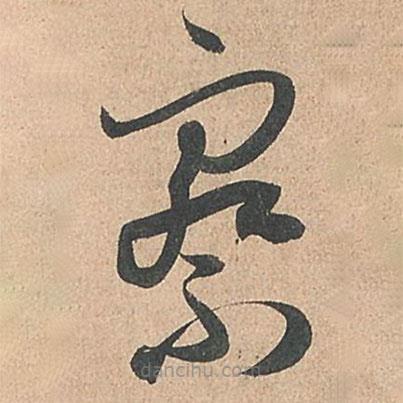 察
dancihu.com